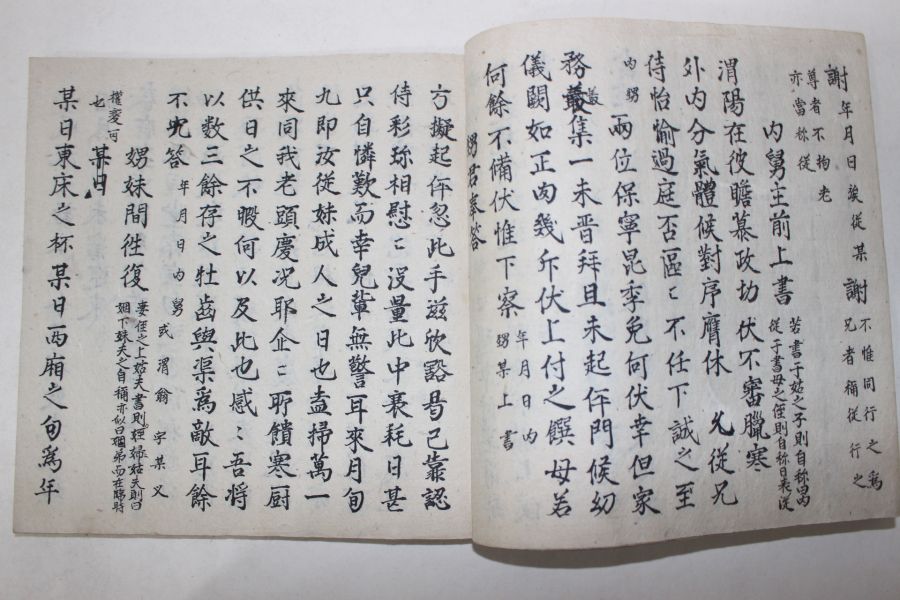 謝 年月日 羕從某 謝 不惟同行之爲
尊者不拘老 兄者稱從行之
亦當称從
內舅主前上書 若書于姑之子則自称曰內
從于書母之侄則自称曰表從
渭陽在彼瞻慕政切 伏不審臘寒
外內分氣體候對序膺休 允從兄
侍怡愉過庭否區〻不任下誠之至
內甥 兩位保寧昆季免何伏幸但家
務叢集一未晋拜且未起伻門候幼
儀闕如正內幾斤伏上付之饌母若
何餘不備伏惟下察 年月日內甥某上書
甥君奉答
方擬起伻忽此手滋欣豁得已靠認
侍彩珎相慰〻沒量此中衰耗日甚
只自憐歎而幸兒輩無警耳來月旬
九即汝從妹成人之日也盍掃萬一
來同我老頭慶况耶企〻所饋寒厨
供日之不暇何以及此也感〻吾將
以数三餘存之牡齒與渠爲敵耳餘
不究答 年月日內舅 或渭翁字某义
甥妹間徃復 妻侄之上姑夫書則經婦姑夫則曰
姻下妹夫之自稱亦似曰姻弟而在臨時
權变可也
某日
某日東床之杯某日西廂之旬爲年